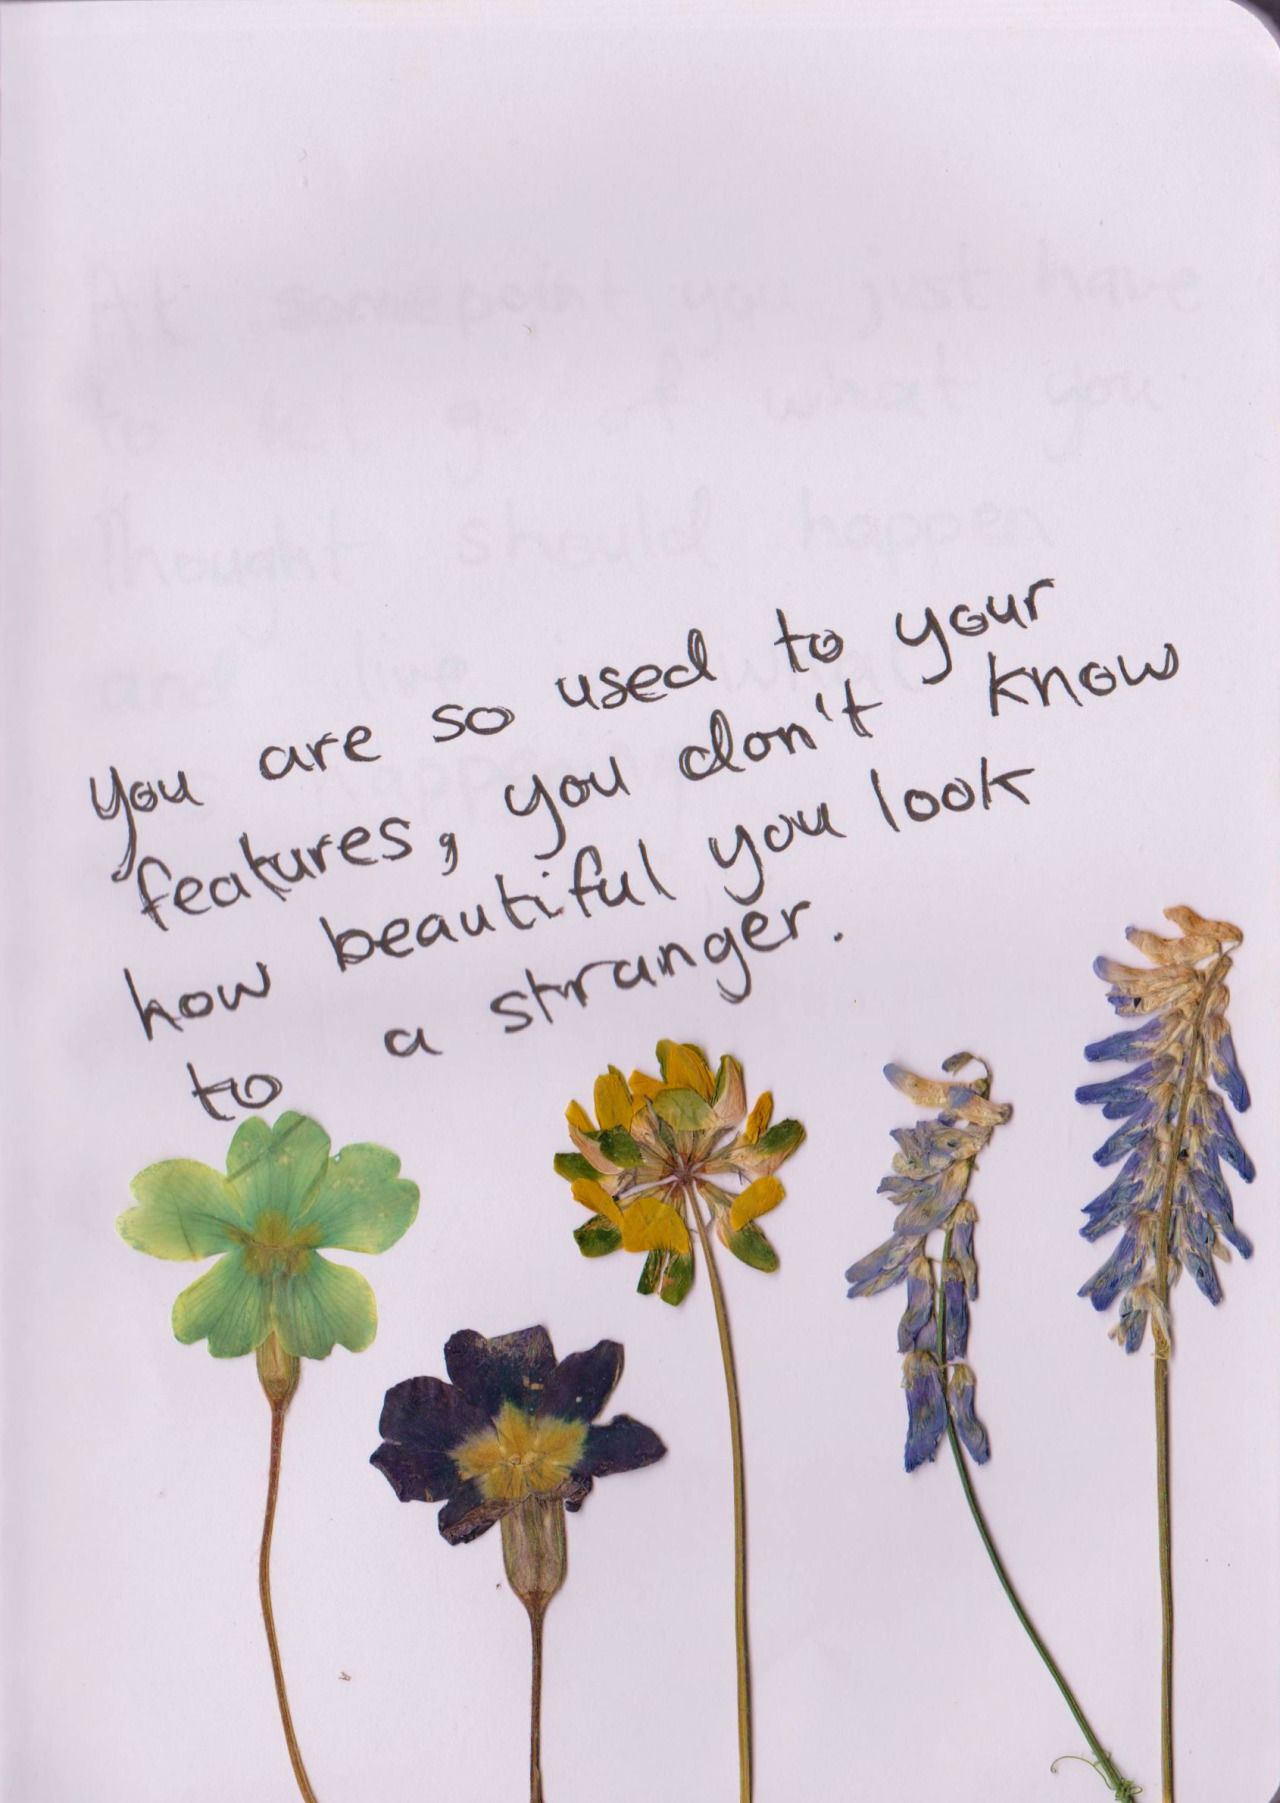 At somepoint you just have
to let go of what you
thought should happen
and live in what
happening
You are so used to your
features, you don't know
how beautiful you look
to a stranger.